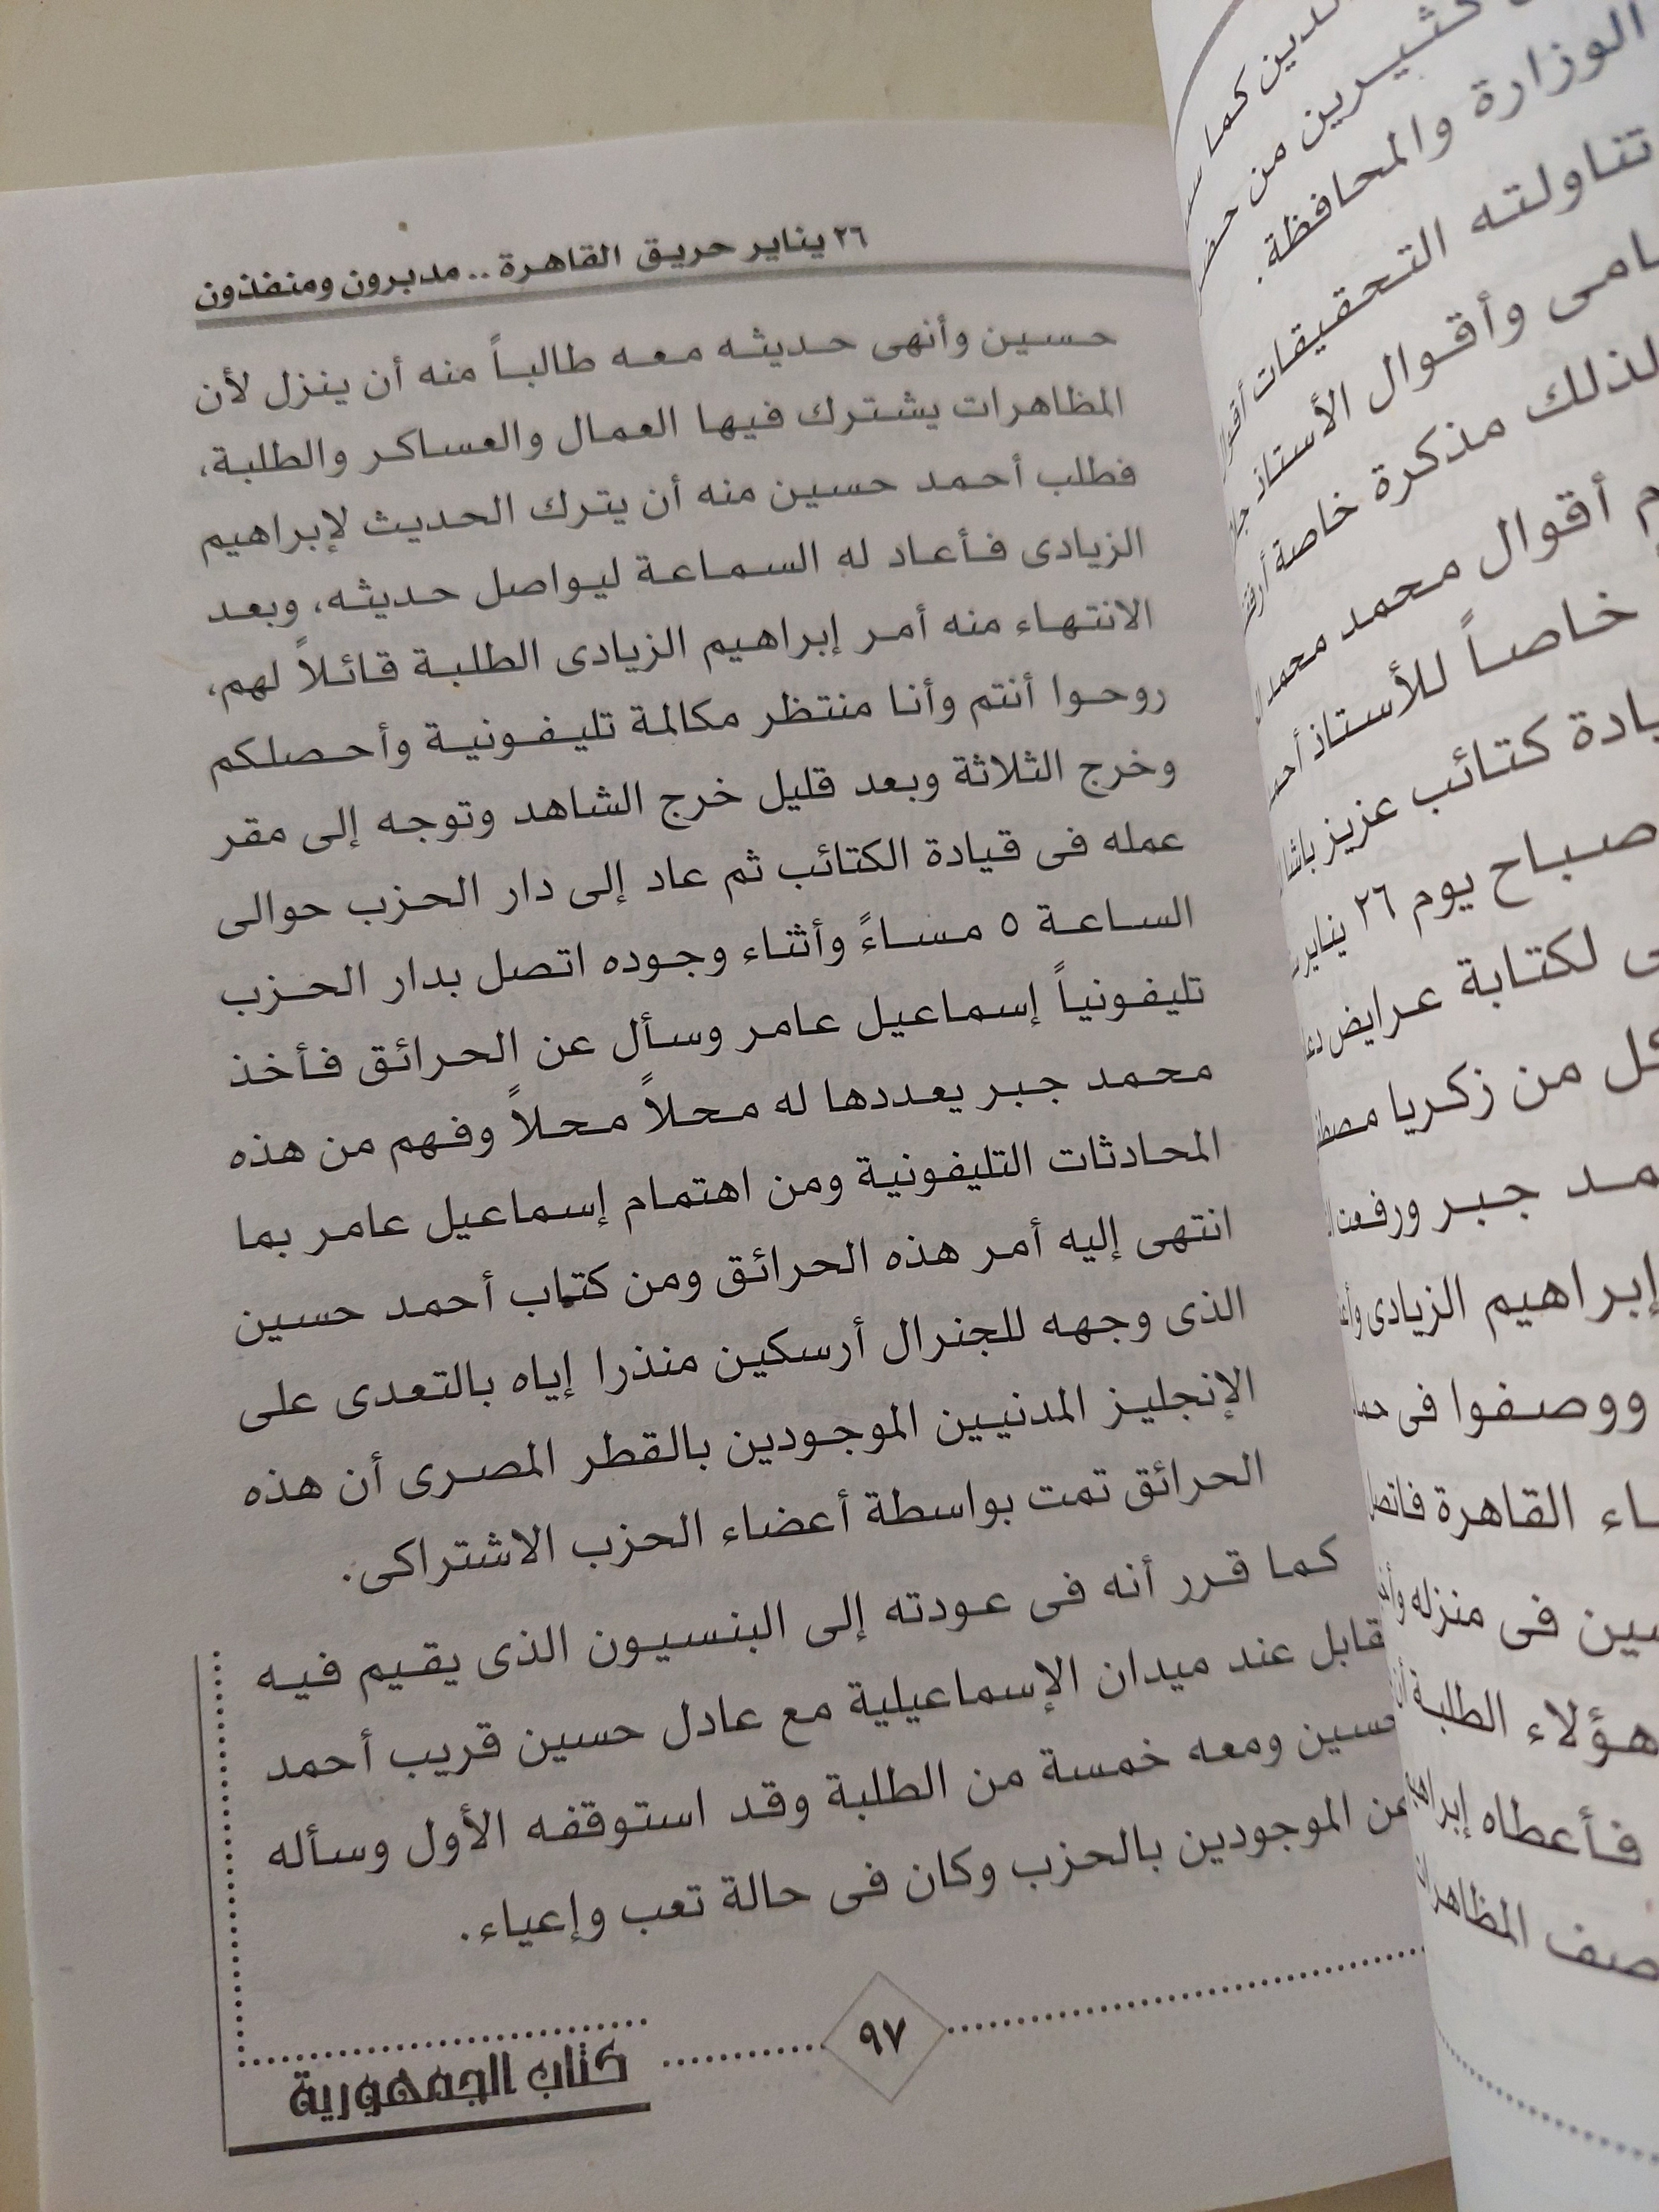 ٢٦ يناير حريق القاهرة .. مدبرون ومنفذون
حسين وأنهى حديثه معه طالباً منه أن ينزل لأن
المظاهرات يشترك فيها العمال والعساكر والطلبة،
فطلب أحمد حسين منه أن يترك الحديث لإبراهيم
الزيادى فأعاد له السماعة ليواصل حديثه، وبعد
الانتهاء منه أمر إبراهيم الزيادى الطلبة قائلاً لهم،
روحوا أنتم وأنا منتظر مكالمة تليفونية وأحصلكم
وخرج الثلاثة وبعد قليل خرج الشاهد وتوجه إلى مقر
عمله فى قيادة الكتائب ثم عاد إلى دار الحزب حوالى
الساعة ٥ مساءً وأثناء وجوده اتصل بدار الحزب
تليفونياً إسماعيل عامر وسأل عن الحرائق فأخذ
محمد جبر يعددها له محلاً محلاً وفهم من هذه
المحادثات التليفونية ومن اهتمام إسماعيل عامر بما
انتهى إليه أمر هذه الحرائق ومن كتاب أحمد حسين
الذى وجهه للجنرال أرسكين منذرا إياه بالتعدى على
الإنجليز المدنيين الموجودين بالقطر المصرى أن هذه
الحرائق تمت بواسطة أعضاء الحزب الاشتراكى.
كما قرر أنه فى عودته إلى البنسيون الذى يقيم فيه
قابل عند ميدان الإسماعيلية مع عادل حسين قريب أحمد
حسين ومعه خمسة من الطلبة وقد استوقفه الأول وسأله
عن الموجودين بالحزب وكان فى حالة تعب وإعياء.
٩٧
كتاب الجمهورية
كثيرين من
الدين كما
الوزارة والمحافظة.
تناولته التحقيقات
وأقوال الأستاذ
لذلك مذكرة خاصة
أقوال محمد محمد
خاصاً للأستاذ
كتائب عزيز
صباح يوم ٢٦ يناير
لكتابة عرايض
كل من زكريا
جبر
إبراهيم الزيادى
ووصفوا فى
القاهرة فاتصل
فى منزله
هؤلاء الطلبة
فأعطاه
المظاهرات